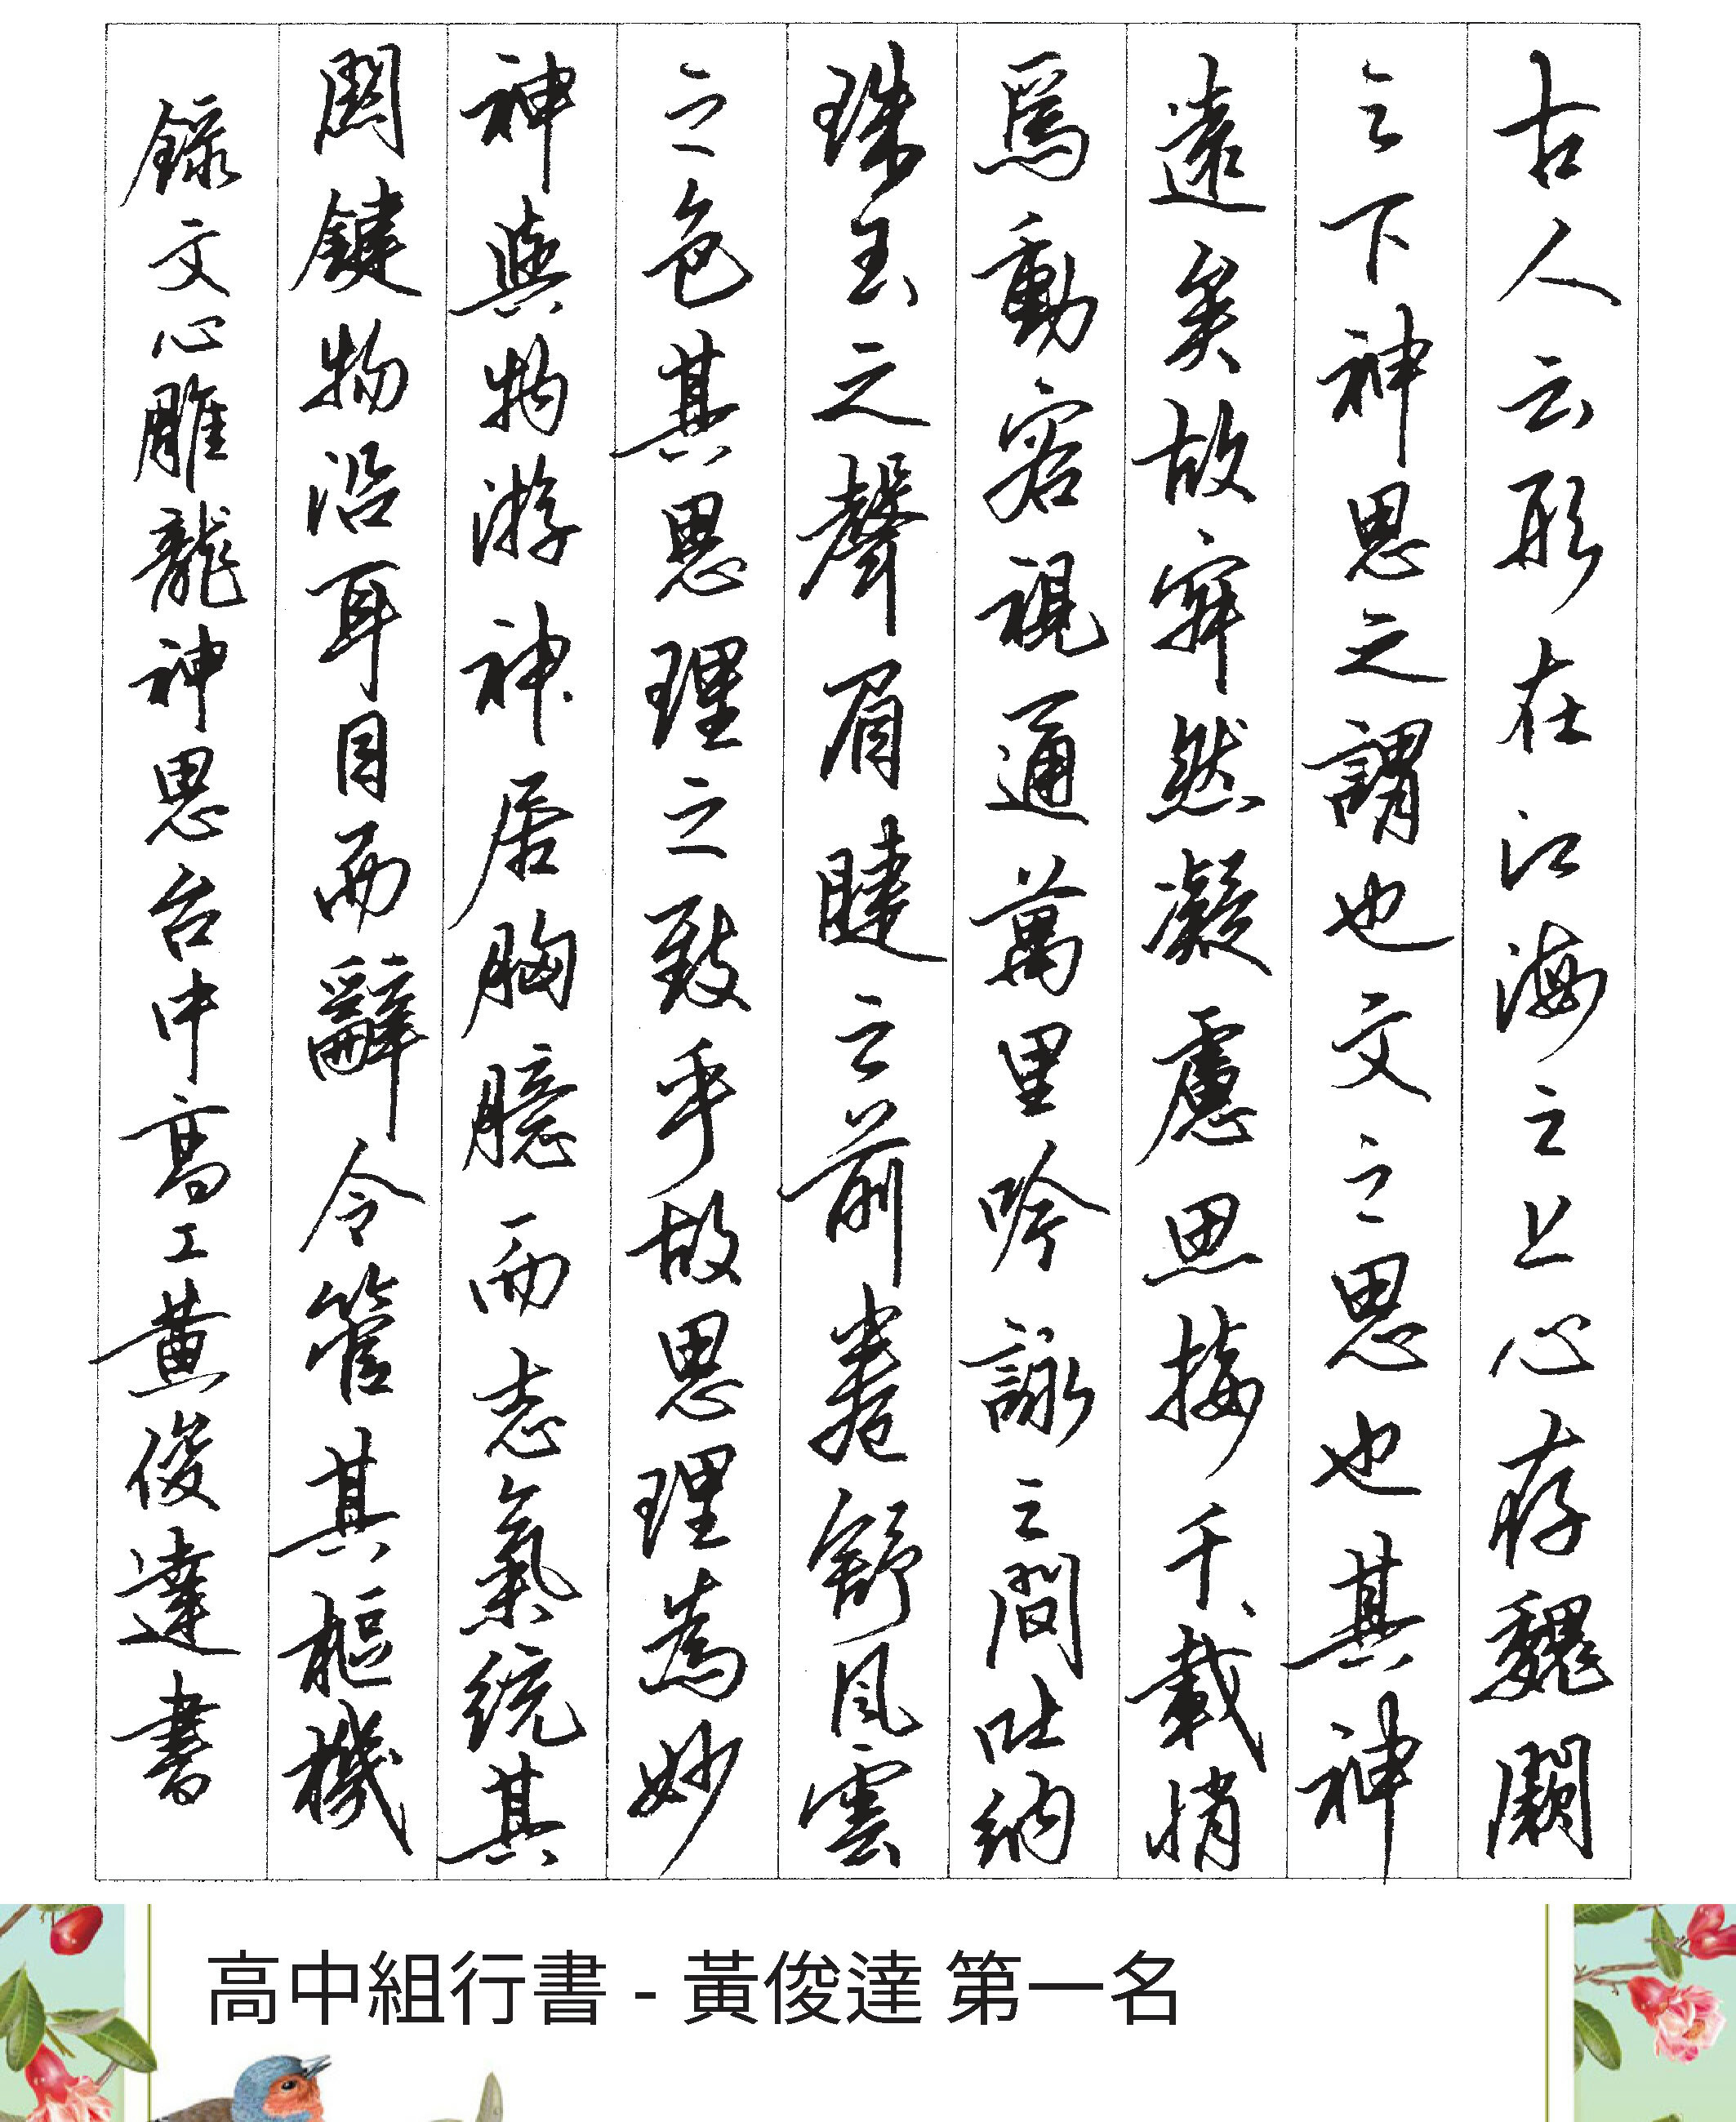 古人云形在江海之上心存魏闕
之下神思之謂也文之思也其神
遠矣故寂然凝慮思接千載悄
焉動容視通萬里吟詠之間吐納
珠玉之聲眉睫之前卷舒風雲
之色其思理之致乎故思理為妙
神與物游神居胸臆而志氣統其
關鍵物沿耳目而辭令管其樞機
錄文心雕龍神思台中高工黃俊達書
高中組行書 - 黃俊達 第一名